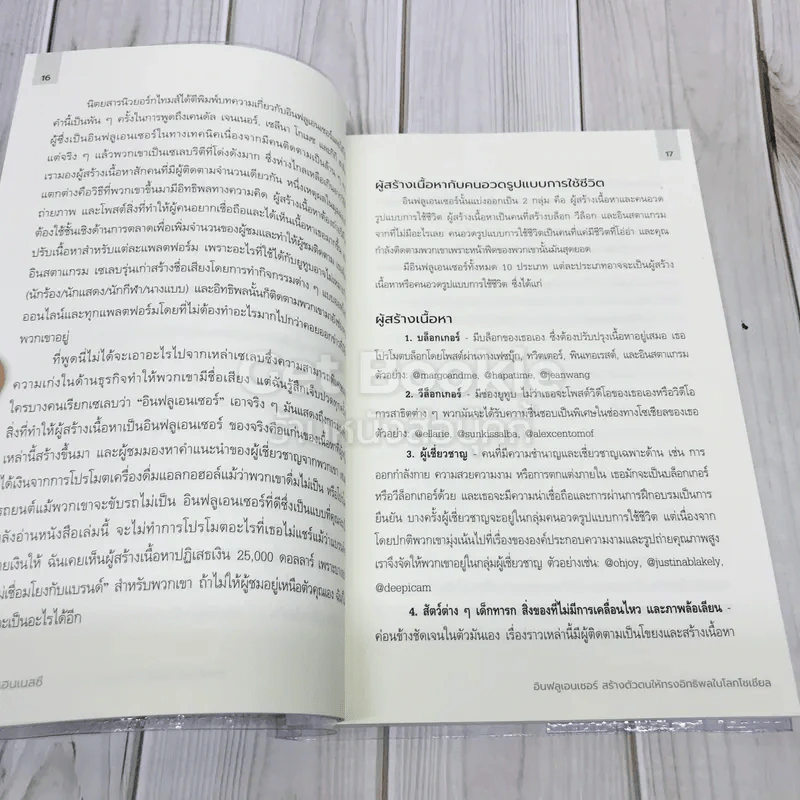 16
นิตยสารนิวยอร์กไทมส์ได้ตีพิมพ์บทความเกี่ยวกับอินฟลูเอนเซอร์
คำนี้เป็นพัน ๆ ครั้งในการพูดถึงเคนดัล เจนเนอร์, เซลีนา โกเมซ และ
ผู้ซึ่งเป็นอินฟลูเอนเซอร์ในทางเทคนิคเนื่องจากมีคนติดตามเป็นล้าน ๆ
แต่จริง ๆ แล้วพวกเขาเป็นเซเลบริตีที่โด่งดังมาก ซึ่งห่างไกลเหลือเกิน
เรามองผู้สร้างเนื้อหาสักคนที่มีผู้ติดตามจำนวนเดียวกัน หนึ่งเหตุผล
แตกต่างคือวิธีที่พวกเขาขึ้นมามีอิทธิพลทางความคิด ผู้สร้างเนื้อหาต้อง
ถ่ายภาพ และโพสต์สิ่งที่ทำให้ผู้คนอยากเชื่อถือและได้เห็นเนื้อหา
ต้องใช้ชั้นเชิงด้านการตลาดเพื่อเพิ่มจำนวนของผู้ชมและทำให้ผู้ชมติดตาม
ปรับเนื้อหาสำหรับแต่ละแพลตฟอร์ม เพราะอะไรที่ใช้ได้กับยูทูบอาจไม่
อินสตาแกรม เซเลบรุ่นเก่าสร้างชื่อเสียงโดยการทำกิจกรรมต่าง ๆ แบบ
(นักร้อง/นักแสดง/นักกีฬา/นางแบบ) และอิทธิพลนั้นก็ติดตามพวกเขามา
ออนไลน์และทุกแพลตฟอร์มโดยที่ไม่ต้องทำอะไรมากไปกว่าคอยออก
พวกเขาอยู่
ที่พูดนี่ไม่ได้จะเอาอะไรไปจากเหล่าเซเลบซึ่งความสามารถ
ความเก่งในด้านธุรกิจทำให้พวกเขามีชื่อเสียง แต่ฉันรู้สึกเจ็บปวด
ใครบางคนเรียกเซเลบว่า “อินฟลูเอนเซอร์” เอาจริง ๆ มันแสดงถึง
สิ่งที่ทำให้ผู้สร้างเนื้อหาเป็นอินฟลูเอนเซอร์ ของจริงคือแก่นของเนื้อหา
เหล่านี้สร้างขึ้นมา และผู้ชมมองหาคำแนะนำของผู้เชี่ยวชาญจากพวกเขา
ได้เงินจากการโปรโมตเครื่องดื่มแอลกอฮอล์แม้ว่าพวกเขาดื่มไม่เป็น หรือ
รถยนต์แม้พวกเขาจะขับรถไม่เป็น อินฟลูเอนเซอร์ที่ดีซึ่งเป็นแบบที่คุณ
ลังอ่านหนังสือเล่มนี้ จะไม่ทำการโปรโมตอะไรที่เธอไม่แชร์แม้ว่า
ยเงินให้ ฉันเคยเห็นผู้สร้างเนื้อหาปฏิเสธเงิน 25,000 ดอลลาร์ เพราะ
ม่เชื่อมโยงกับแบรนด์” สำหรับพวกเขา ถ้าไม่ให้ผู้ชมอยู่เหนือตัวคุณเอง
จะเป็นอะไรได้อีก
ฮนเนสซี
17
ผู้สร้างเนื้อหากับคนอวดรูปแบบการใช้ชีวิต
อินฟลูเอนเซอร์นั้นแบ่งออกเป็น 2 กลุ่ม คือ ผู้สร้างเนื้อหาและคนอวด
รูปแบบการใช้ชีวิต ผู้สร้างเนื้อหาเป็นคนที่สร้างบล็อก วีล็อก และอินสตาแกรม
จากที่ไม่มีอะไรเลย คนอวดรูปแบบการใช้ชีวิตเป็นคนที่แค่มีชีวิตที่โอ่อ่า และคุณ
กำลังติดตามพวกเขาเพราะหน้าฟีดของพวกเขานั้นมันสุดยอด
มีอินฟลูเอนเซอร์ทั้งหมด 10 ประเภท แต่ละประเภทอาจจะเป็นผู้สร้าง
เนื้อหาหรือคนอวดรูปแบบการใช้ชีวิต ซึ่งได้แก่
ผู้สร้างเนื้อหา
1. บล็อกเกอร์ - มีบล็อกของเธอเอง ซึ่งต้องปรับปรุงเนื้อหาอยู่เสมอ เธอ
โปรโมตบล็อกโดยโพสต์ผ่านทางเฟซบุ๊ก, ทวิตเตอร์, พินเทอเรสต์, และอินสตาแกรม
ตัวอย่าง: @margoandme, @hapatime, @jeanwang
2. วีล็อกเกอร์ - มีช่องยูทูบ ไม่ว่าเธอจะโพสต์วิดีโอของเธอเองหรือวิดีโอ
การสาธิตต่าง ๆ พวกมันจะได้รับความชื่นชอบเป็นพิเศษในช่องทางโซเชียลของเธอ
ตัวอย่าง @ellarie, @sunkissalba, @alexcentomof
3. ผู้เชี่ยวชาญ - คนที่มีความชำนาญและเชี่ยวชาญเฉพาะด้าน เช่น การ
ออกกำลังกาย ความสวยความงาม หรือการตกแต่งภายใน เธอมักจะเป็นบล็อกเกอร์
หรือวีล็อกเกอร์ด้วย และเธอจะมีความน่าเชื่อถือและการผ่านการฝึกอบรมเป็นการ
ยืนยัน บางครั้งผู้เชี่ยวชาญจะอยู่ในกลุ่มคนอวดรูปแบบการใช้ชีวิต แต่เนื่องจาก
โดยปกติพวกเขามุ่งเน้นไปที่เรื่องขององค์ประกอบความงามและรูปถ่ายคุณภาพสูง
เราจึงจัดให้พวกเขาอยู่ในกลุ่มผู้เชี่ยวชาญ ตัวอย่างเช่น: @ohjoy, @justinablakely,
@deepicam
4. สัตว์ต่าง ๆ เด็กทารก สิ่งของที่ไม่มีการเคลื่อนไหว และภาพล้อเลียน -
ค่อนข้างชัดเจนในตัวมันเอง เรื่องราวเหล่านี้มีผู้ติดตามเป็นโขยงและสร้างเนื้อหา
อินฟลูเอนเซอร์ สร้างตัวตนให้ทรงอิทธิพลในโลกโซเชียล
Get Bookie
ร้านหนังสือมุกกี้